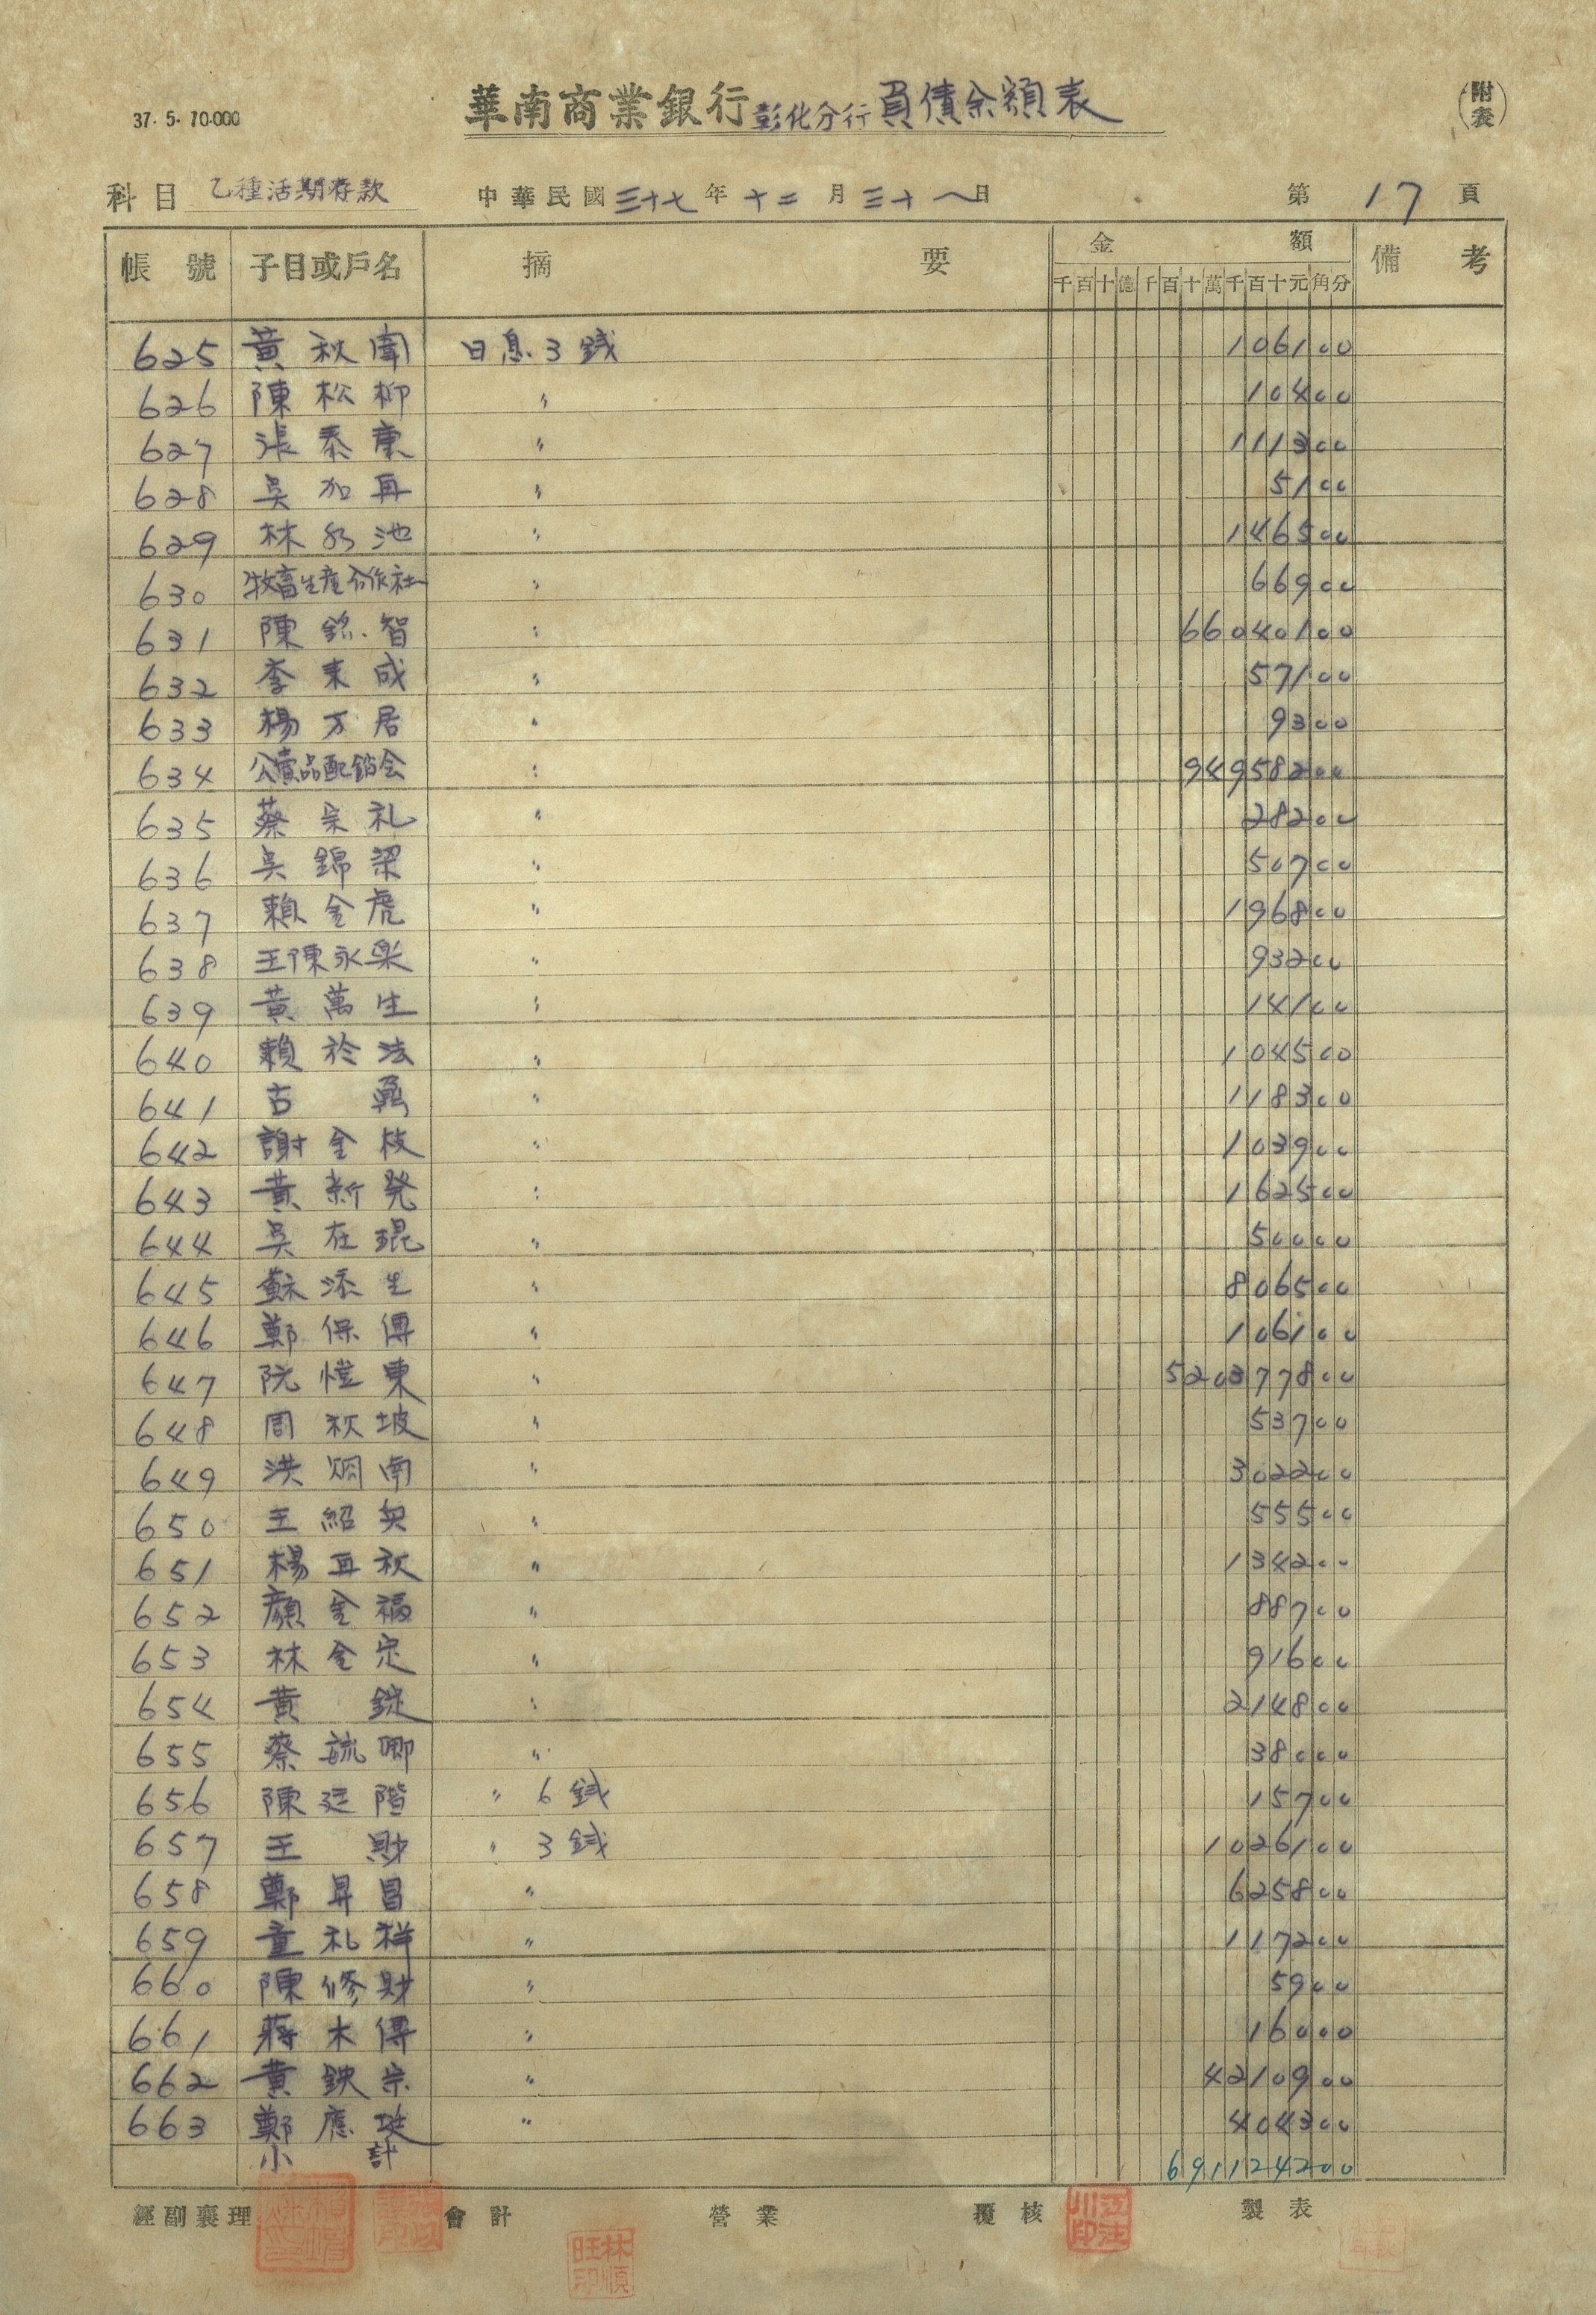 37. 5. 10.000
華南商業銀行彰化分行負債余額表
(附表)
科目 乙種活期存款 中華民國三十七年十二月三十一日 第17頁
帳號 子目或戶名 摘要 金額 備考
千百十億千百十萬千百十元角分
625 黃秋閙 日息3錢 1061 00
626 陳松柳 〃 104 00
627 張泰康 〃 1113 00
628 吳加再 〃 51 00
629 林水池 〃 1465 00
630 牧畜生產合作社 〃 669 00
631 陳銘智 〃 660401 00
632 李来成 〃 571 00
633 楊万居 〃 93 00
634 公賣品配銷会 〃 949582 00
635 蔡宗礼 〃 282 00
636 吳錦梁 〃 507 00
637 賴金虎 〃 1968 00
638 王陳永樂 〃 932 00
639 黃萬生 〃 141 00
640 賴於法 〃 1045 00
641 古 〃 1183 00
642 謝金枝 〃 1039 00
643 黃新発 〃 1625 00
644 吳在琨 〃 500 00
645 蘇添生 〃 8065 00
646 鄭保傳 〃 1061 00
647 阮愷東 〃 5203778 00
648 周秋坡 〃 537 00
649 洪炯南 〃 3022 00
650 王紹英 〃 555 00
651 楊再秋 〃 1342 00
652 顏金福 〃 887 00
653 林金定 〃 916 00
654 黃錠 〃 2148 00
655 蔡毓卿 〃 380 00
656 陳廷階 〃 6錢 157 00
657 王財 〃 3錢 10261 00
658 鄭昇昌 〃 6258 00
659 童礼祥 〃 1172 00
660 陳修財 〃 59 00
661 蔣木傳 〃 160 00
662 黃鉄宗 〃 42109 00
663 鄭應 〃 4043 00
小計 6911242 00
經副襄理 會計 營業 覆核 製表
林順旺印
江注川印